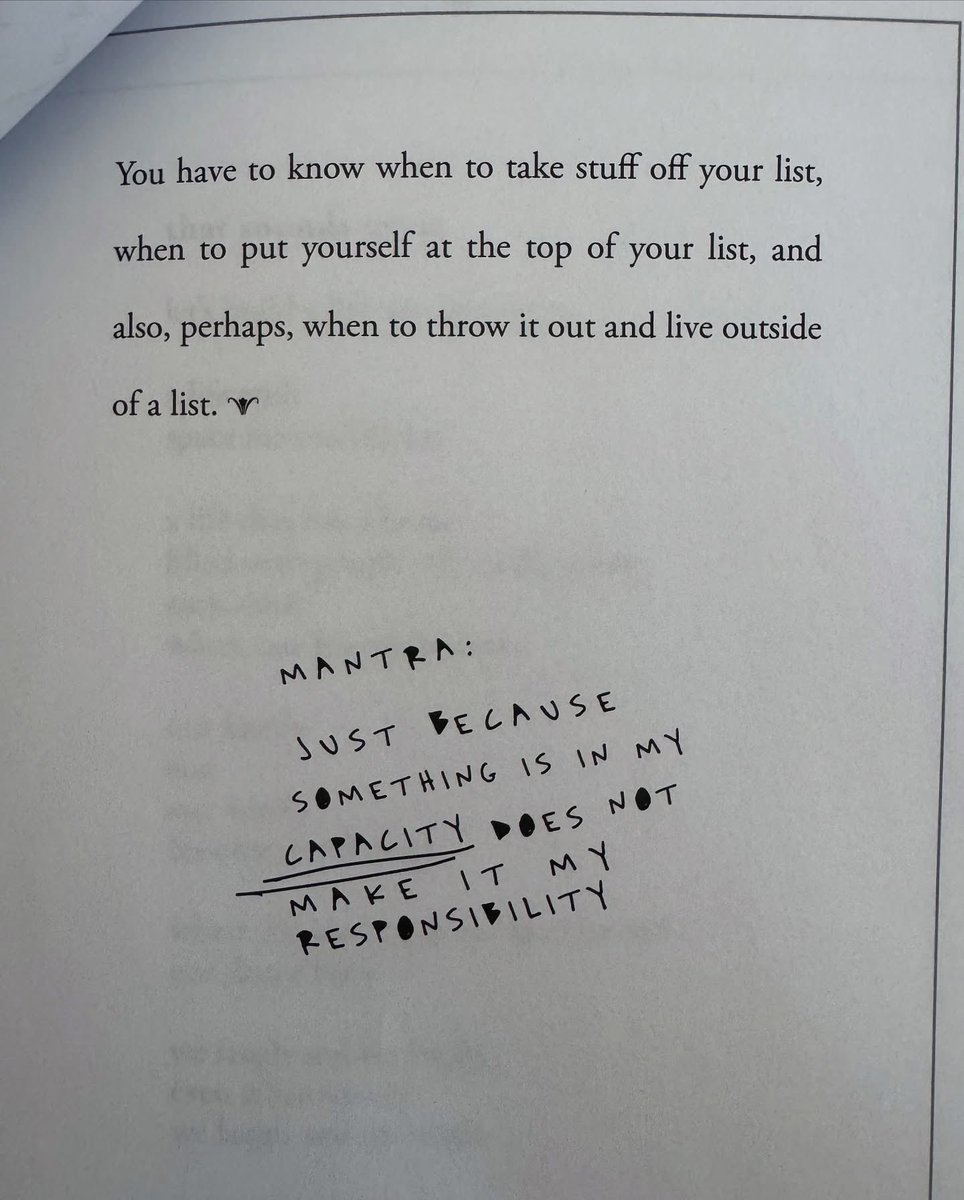 You have to know when to take stuff off your list,
when to put yourself at the top of your list, and
also, perhaps, when to throw it out and live outside
of a list.
MANTRA:
JUST BECAUSE
SOMETHING IS IN MY
CAPACITY DOES NOT
MAKE IT MY
RESPONSIBILITY